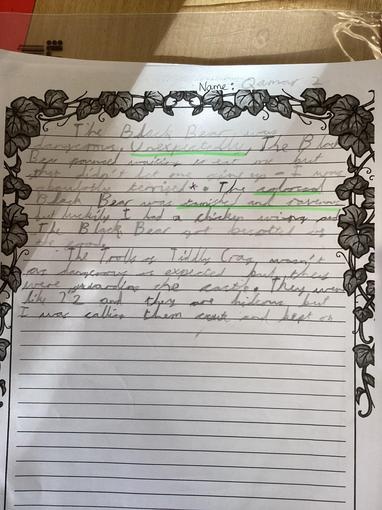 Name: Qamar 2
The Black Bear was
dangerous, Unexpectedly, The Black
Bear pounced waiting to eat me but
that didn't let me give up - I was
absolutely terrified*. The
Black Bear was famished and ravenous
but luckily I had a chicken wing and
The Black Bear got
the goods.
The Trolls of Tiddly Crag, wasn't
as dangerous as expected but they
were guarding the castle. They were
like 12 and they are hideous but
I was calling them out and kept on